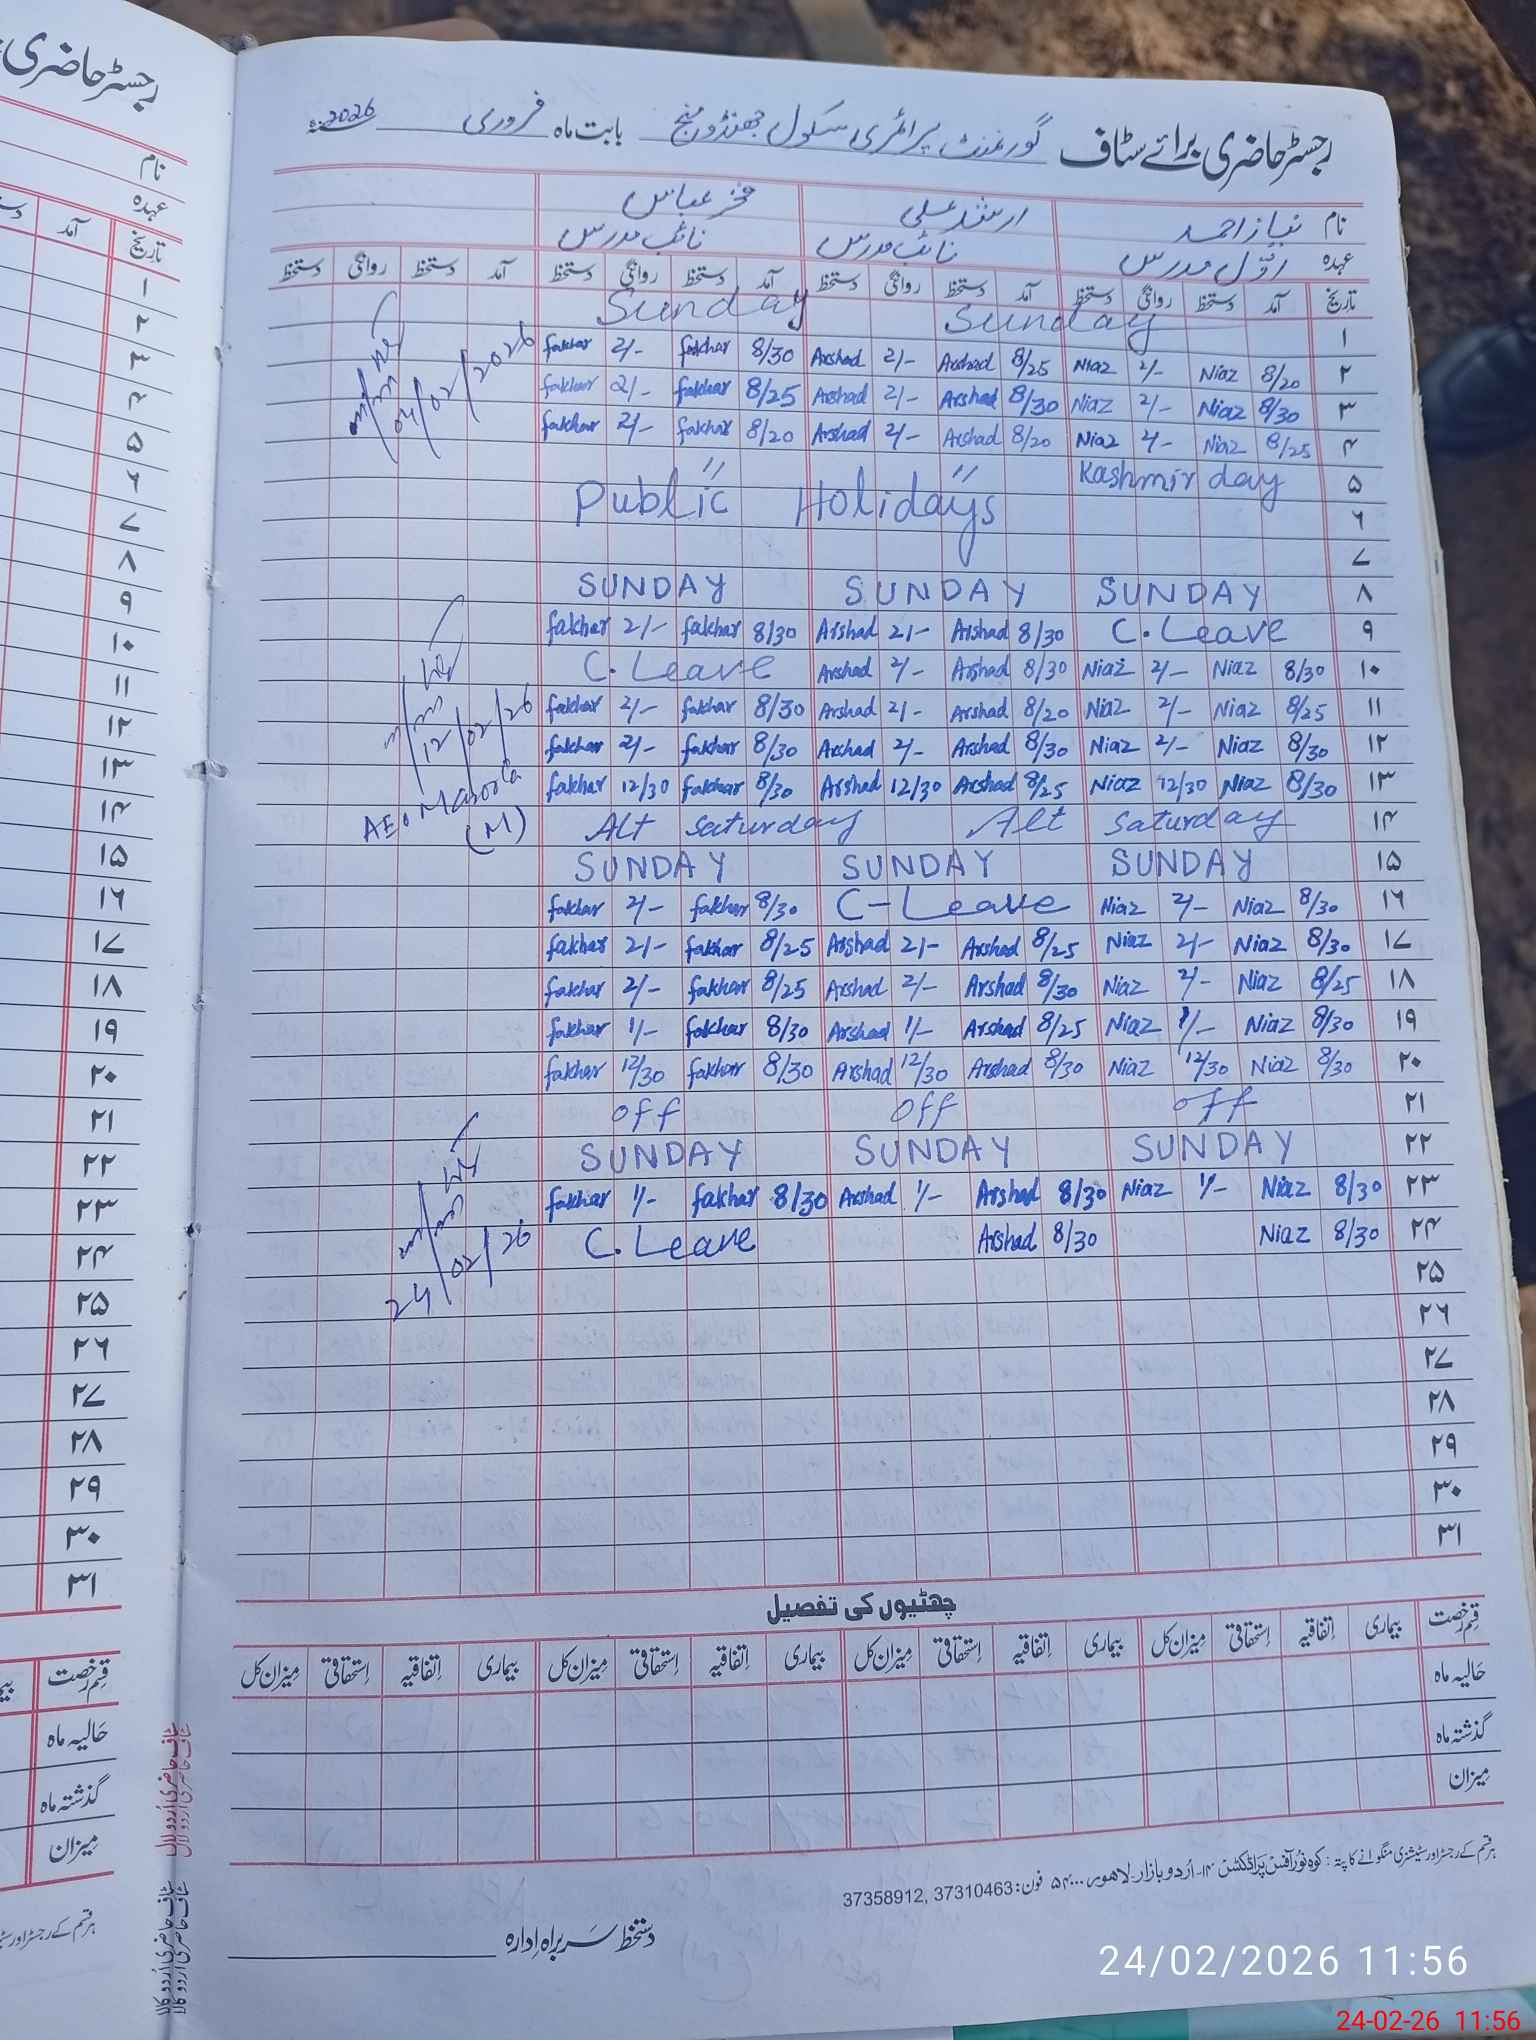 رجسٹر حاضری برائے سٹاف گورنمنٹ پرائمری سکول جھنڈو منج بابت ماہ فروری 2026ء
نام نیاز احمد ارشد علی فخر عباس
عہدہ اوّل مدرس نائب مدرس نائب مدرس
تاریخ آمد دستخط روانگی دستخط آمد دستخط روانگی دستخط آمد دستخط روانگی دستخط آمد دستخط روانگی دستخط
۱ Sunday Sunday
۲ 8/20 Niaz 2/- Niaz 8/25 Arshad 2/- Arshad 8/30 fakhar 2/- fakhar
۳ 8/30 Niaz 2/- Niaz 8/30 Arshad 2/- Arshad 8/25 fakhar 2/- fakhar
۴ 8/25 Niaz 2/- Niaz 8/20 Arshad 2/- Arshad 8/20 fakhar 2/- fakhar
04/02/2026
۵ Kashmir day " "
۶ Public Holidays
۷
۸ SUNDAY SUNDAY SUNDAY
۹ C. Leave 8/30 Arshad 2/- Arshad 8/30 fakhar 2/- fakhar
۱۰ 8/30 Niaz 2/- Niaz 8/30 Arshad 2/- Arshad C. Leave
۱۱ 8/25 Niaz 2/- Niaz 8/20 Arshad 2/- Arshad 8/30 fakhar 2/- fakhar
۱۲ 8/30 Niaz 2/- Niaz 8/30 Arshad 2/- Arshad 8/30 fakhar 2/- fakhar
12/02/26
۱۳ 8/30 Niaz 12/30 Niaz 8/25 Arshad 12/30 Arshad 8/30 fakhar 12/30 fakhar
AEO
(M)
۱۴ Alt Saturday Alt Saturday
۱۵ SUNDAY SUNDAY SUNDAY
۱۶ 8/30 Niaz 2/- Niaz C-Leave 8/30 fakhar 2/- fakhar
۱۷ 8/30 Niaz 2/- Niaz 8/25 Arshad 2/- Arshad 8/25 fakhar 2/- fakhar
۱۸ 8/25 Niaz 2/- Niaz 8/30 Arshad 2/- Arshad 8/25 fakhar 2/- fakhar
۱۹ 8/30 Niaz 1/- Niaz 8/25 Arshad 1/- Arshad 8/30 fakhar 1/- fakhar
۲۰ 8/30 Niaz 12/30 Niaz 8/30 Arshad 12/30 Arshad 8/30 fakhar 12/30 fakhar
۲۱ off off off
۲۲ SUNDAY SUNDAY SUNDAY
۲۳ 8/30 Niaz 1/- Niaz 8/30 Arshad 1/- Arshad 8/30 fakhar 1/- fakhar
۲۴ 8/30 Niaz 8/30 Arshad C. Leave
24/02/26
۲۵
۲۶
۲۷
۲۸
۲۹
۳۰
۳۱
چھٹیوں کی تفصیل
قسم رخصت بیماری اِتفاقیہ اِستحقاقی مِیزان کل بیماری اِتفاقیہ اِستحقاقی مِیزان کل بیماری اِتفاقیہ اِستحقاقی مِیزان کل بیماری اِتفاقیہ اِستحقاقی مِیزان کل
حالیہ ماہ
گذشتہ ماہ
مِیزان
ہر قسم کے رجسٹر اور سٹیشنری منگوانے کا پتہ: کوہ نُور آفس پراڈکٹس ۱۴-اُردو بازار-لاہور ۵۴۰۰۰ فون: 37310463, 37358912
دستخط سربراہِ اِدارہ
رجسٹر حاضری
نام
عہدہ
تاریخ آمد
۱
۲
۳
۴
۵
۶
۷
۸
۹
۱۰
۱۱
۱۲
۱۳
۱۴
۱۵
۱۶
۱۷
۱۸
۱۹
۲۰
۲۱
۲۲
۲۳
۲۴
۲۵
۲۶
۲۷
۲۸
۲۹
۳۰
۳۱
قسم رخصت
حالیہ ماہ
گذشتہ ماہ
مِیزان
24/02/2026 11:56
24-02-26 11:56